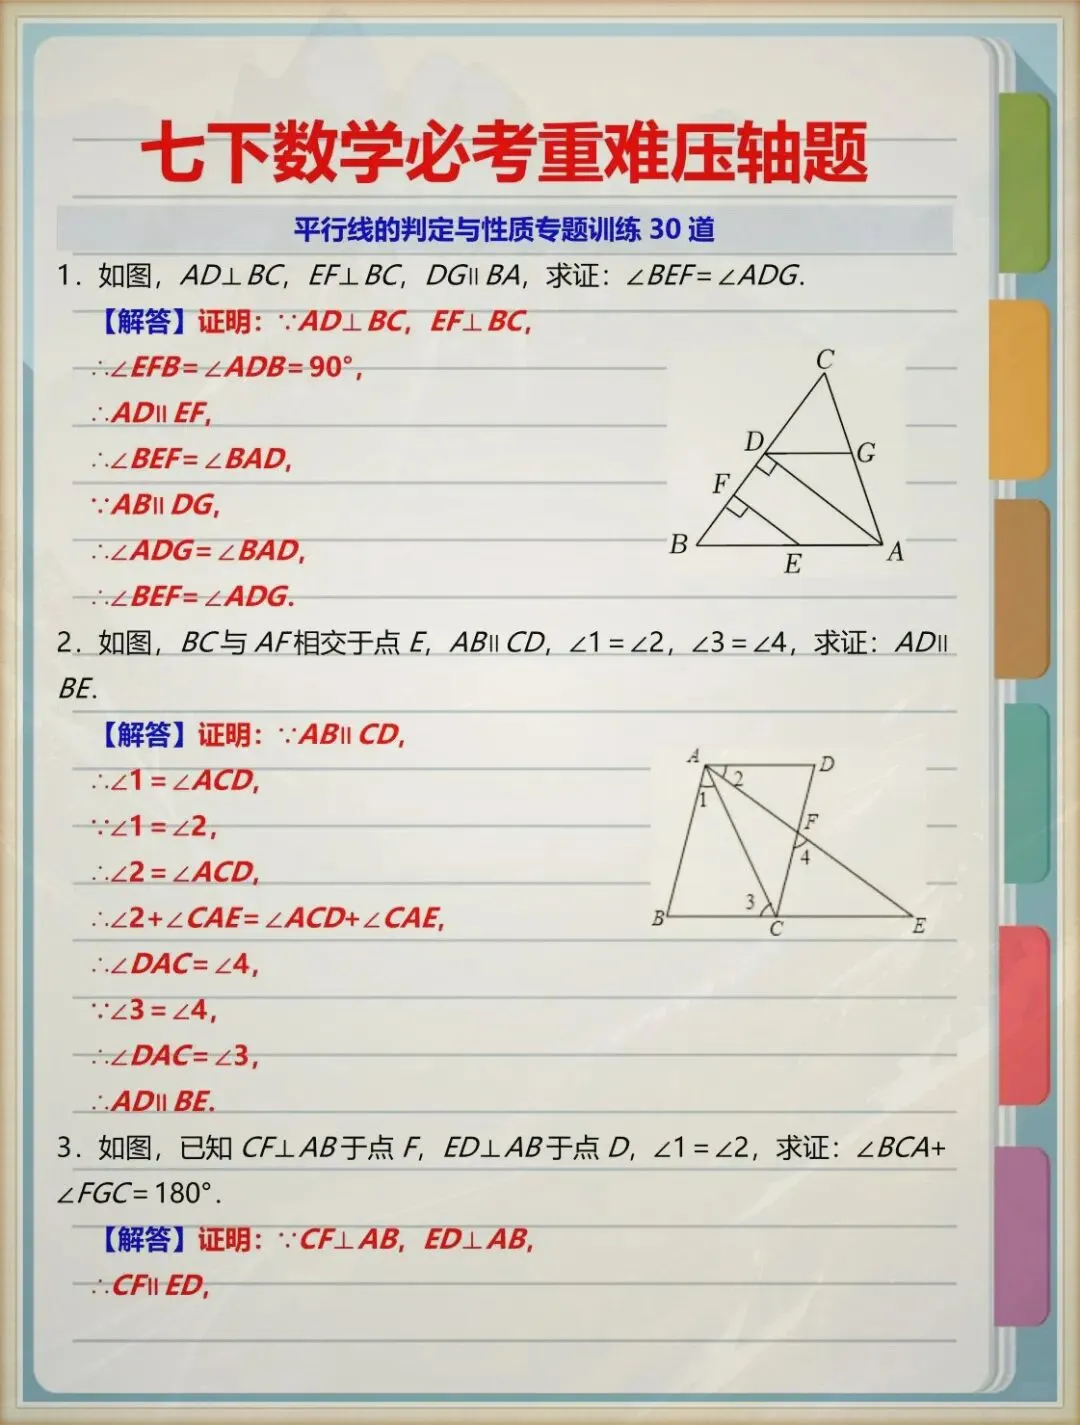 七下数学必考重难压轴题
平行线的判定与性质专题训练 30 道
1. 如图，AD⊥BC，EF⊥BC，DG∥BA，求证：∠BEF=∠ADG.
【解答】证明：∵AD⊥BC，EF⊥BC，
∴∠EFB=∠ADB=90°，
∴AD∥EF，
∴∠BEF=∠BAD，
∵AB∥DG，
∴∠ADG=∠BAD，
∴∠BEF=∠ADG.
C
D
G
F
B
E
A
2. 如图，BC与AF相交于点E，AB∥CD，∠1=∠2，∠3=∠4，求证：AD∥
BE.
【解答】证明：∵AB∥CD，
∴∠1=∠ACD，
∵∠1=∠2，
∴∠2=∠ACD，
∴∠2+∠CAE=∠ACD+∠CAE，
∴∠DAC=∠4，
∵∠3=∠4，
∴∠DAC=∠3，
∴AD∥BE.
A
D
2
1
F
4
3
B
C
E
3. 如图，已知CF⊥AB于点F，ED⊥AB于点D，∠1=∠2，求证：∠BCA+
∠FGC=180°.
【解答】证明：∵CF⊥AB，ED⊥AB，
∴CF∥ED，